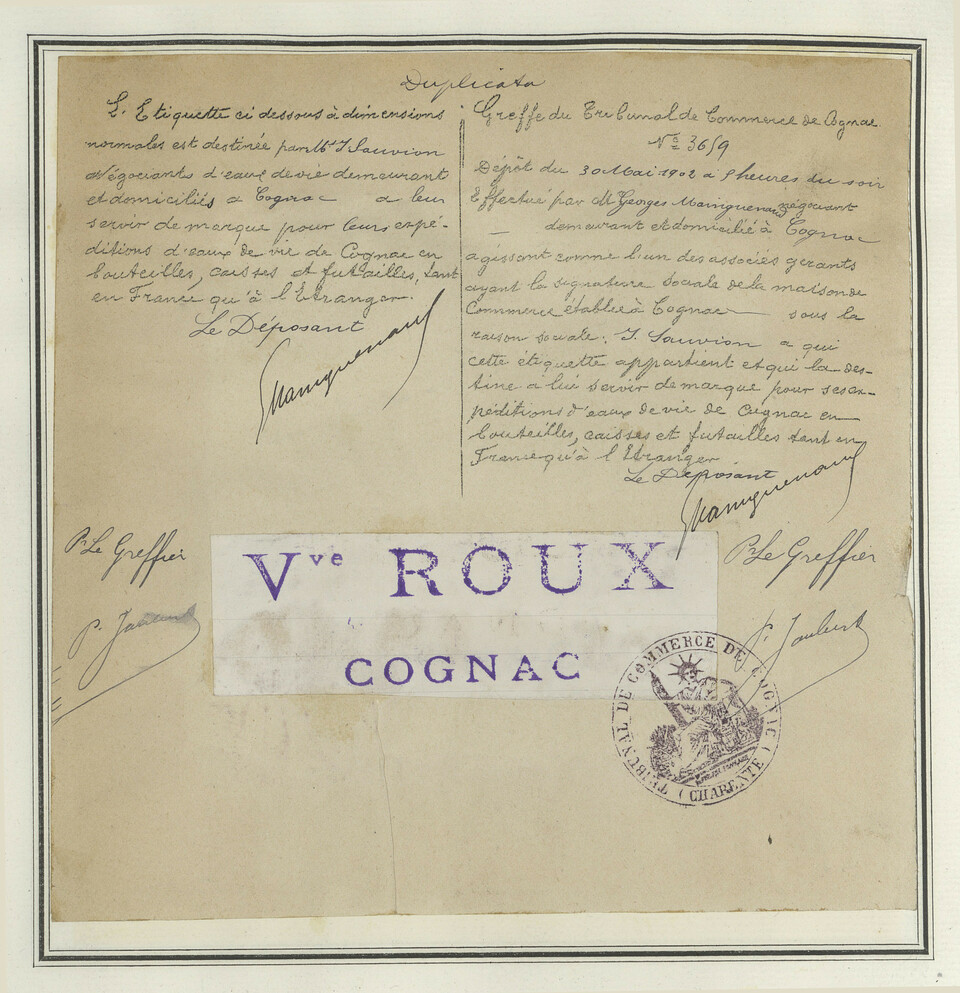 Duplicata
L'Etiquette ci dessous à dimensions
normales est destinée par MM. J. Sauvion
Négociants d'eaux de vie demeurant
et domiciliés à Cognac à leur
servir de marque pour leurs expé-
ditions d'eaux de vie de Cognac en
bouteilles, caisses et futailles, tant
en France qu'à l'Etranger.
Le Déposant
GMainguenaud
Greffe du Tribunal de Commerce de Cognac
No 3659
Dépôt du 30 Mai 1902 à heures du soir
Effectué par M Georges Mainguenaud négociant
demeurant et domicilié à Cognac
agissant comme l'un des associés gérants
ayant la signature sociale de la maison de
Commerce établie à Cognac sous la
raison sociale: J. Sauvion a qui
cette étiquette appartient et qui la des-
tine à lui servir de marque pour ses ex-
péditions d'eaux de vie de Cognac en
bouteilles, caisses et futailles tant en
France qu'à l'Etranger
Le Déposant
GMainguenaud
Pr Le Greffier
P. Joubert
Pr Le Greffier
P. Joubert
Vve ROUX
COGNAC
TRIBUNAL DE COMMERCE DE COGNAC
(CHARENTE)